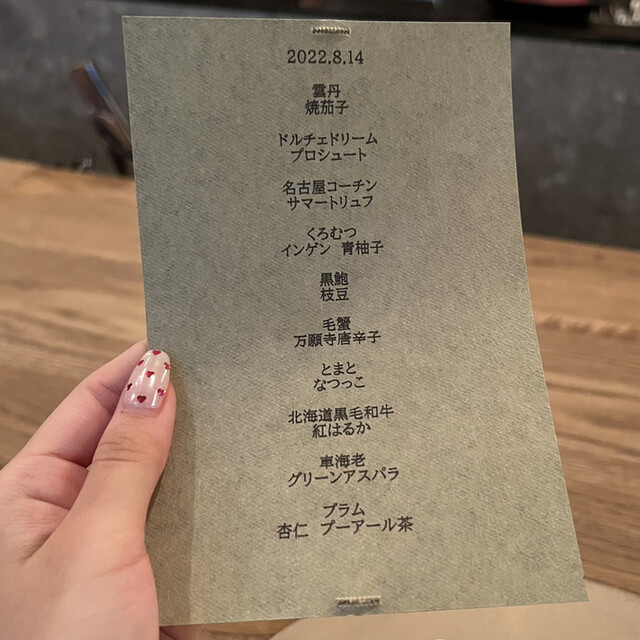 2022.8.14
雲丹
焼茄子
ドルチェドリーム
プロシュート
名古屋コーチン
サマートリュフ
くろむつ
インゲン 青柚子
黒鮑
枝豆
毛蟹
万願寺唐辛子
とまと
なつっこ
北海道黒毛和牛
紅はるか
車海老
グリーンアスパラ
プラム
杏仁 プーアール茶